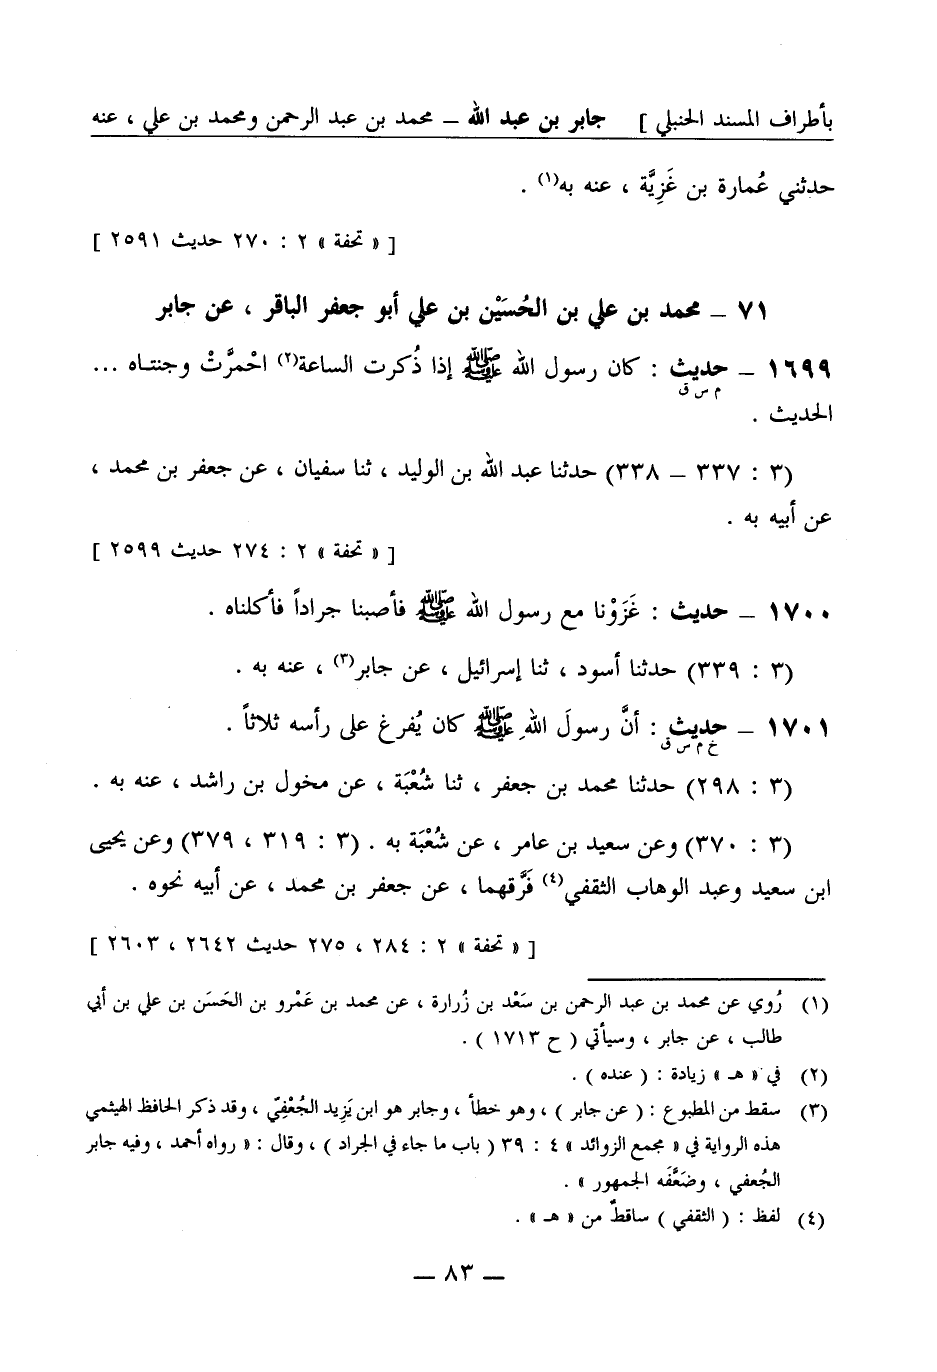 بأطراف المسند الحنبلي ] جابر بن عبد الله – محمد بن عبد الرحمن ومحمد بن علي ، عنه
حدثني عُمارة بن غَزِيَّة ، عنه به(١) .
[ « تحفة » ٢ : ٢٧٠ حديث ٢٥٩١ ]
٧١ – محمد بن علي بن الحُسَيْن بن علي أبو جعفر الباقر ، عن جابر
١٦٩٩ – حديث : كان رسول الله ﷺ إذا ذُكرت الساعة(٢) احْمرَّتْ وجنتـاه ...
م س ق
الحديث .
(٣ : ٣٣٧ – ٣٣٨) حدثنا عبد الله بن الوليد ، ثنا سفيان ، عن جعفر بن محمد ،
عن أبيه به .
[ « تحفة » ٢ : ٢٧٤ حديث ٢٥٩٩ ]
١٧٠٠ – حديث : غَزَوْنا مع رسول الله ﷺ فأصبنا جراداً فأكلناه .
(٣ : ٣٣٩) حدثنا أسود ، ثنا إسرائيل ، عن جابر(٣) ، عنه به .
١٧٠١ – حديث : أنَّ رسولَ اللهِ ﷺ كان يُفرغ على رأسه ثلاثاً .
خ م س ق
(٣ : ٢٩٨) حدثنا محمد بن جعفر ، ثنا شُعْبَة ، عن مخول بن راشد ، عنه به .
(٣ : ٣٧٠) وعن سعيد بن عامر ، عن شُعْبَة به . (٣ : ٣١٩ ، ٣٧٩) وعن يحيى
ابن سعيد وعبد الوهاب الثقفي(٤) فَرَّقهما ، عن جعفر بن محمد ، عن أبيه نحوه .
[ « تحفة » ٢ : ٢٨٤ ، ٢٧٥ حديث ٢٦٤٢ ، ٢٦٠٣ ]
(١) رُوي عن محمد بن عبد الرحمن بن سَعْد بن زُرارة ، عن محمد بن عَمْرو بن الحَسَن بن علي بن أبي
طالب ، عن جابر ، وسيأتي ( ح ١٧١٣ ) .
(٢) في « هـ » زيادة : ( عنده ) .
(٣) سقط من المطبوع : ( عن جابر ) ، وهو خطأ ، وجابر هو ابن يَزِيد الجُعْفِيّ ، وقد ذكر الحافظ الهيثمي
هذه الرواية في « مجمع الزوائد » ٤ : ٣٩ ( باب ما جاء في الجراد ) ، وقال : « رواه أحمد ، وفيه جابر
الجُعفي ، وضَعَّفَه الجمهور » .
(٤) لفظ : ( الثقفي ) ساقطٌ من « هـ » .
– ٨٣ –